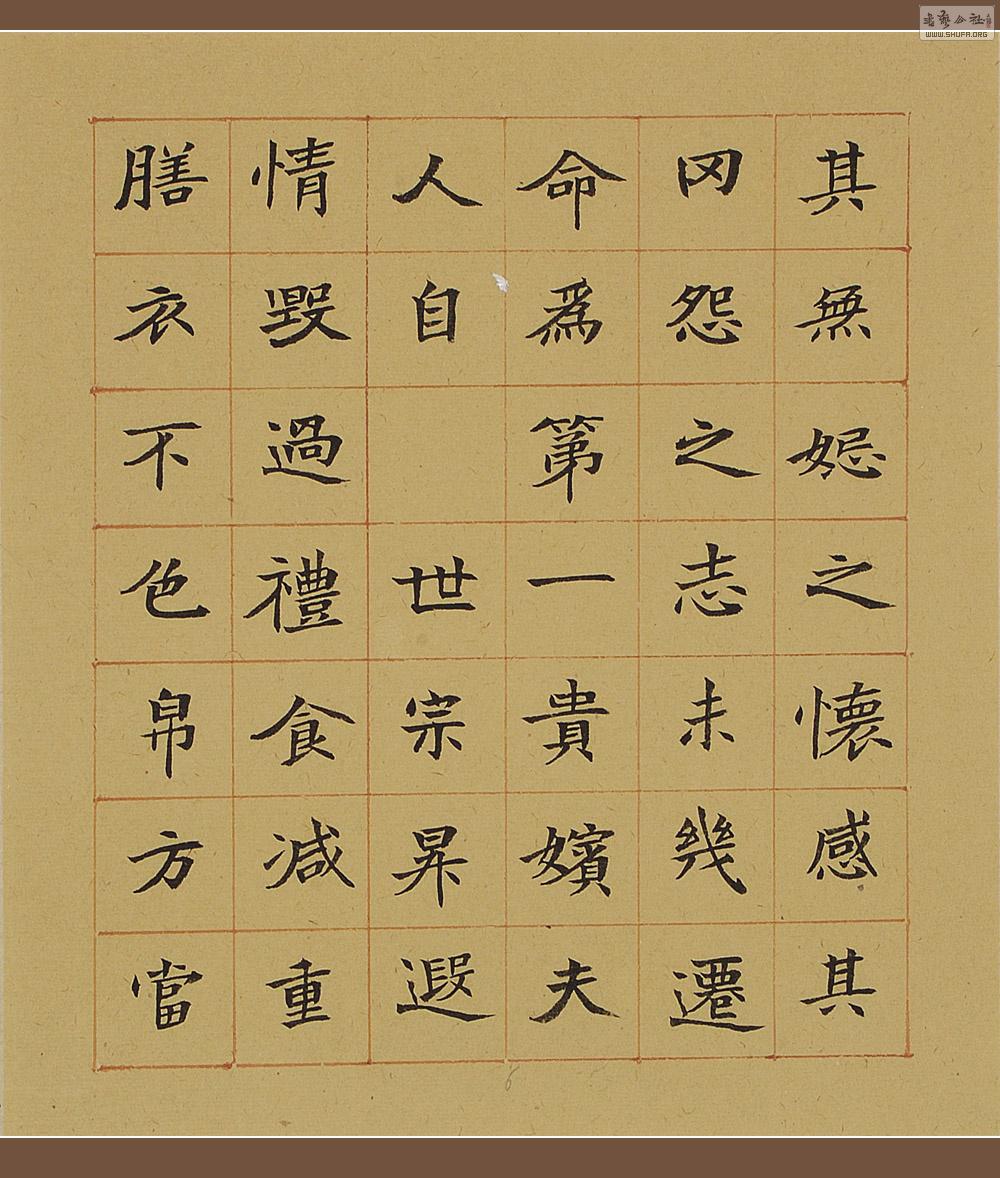 其無妒之懷感其
罔怨之志未幾遷
命爲第一貴嬪夫
人自 世宗昇遐
情毀過禮食減重
膳衣不色帛方當
WWW.SHUFA.ORG